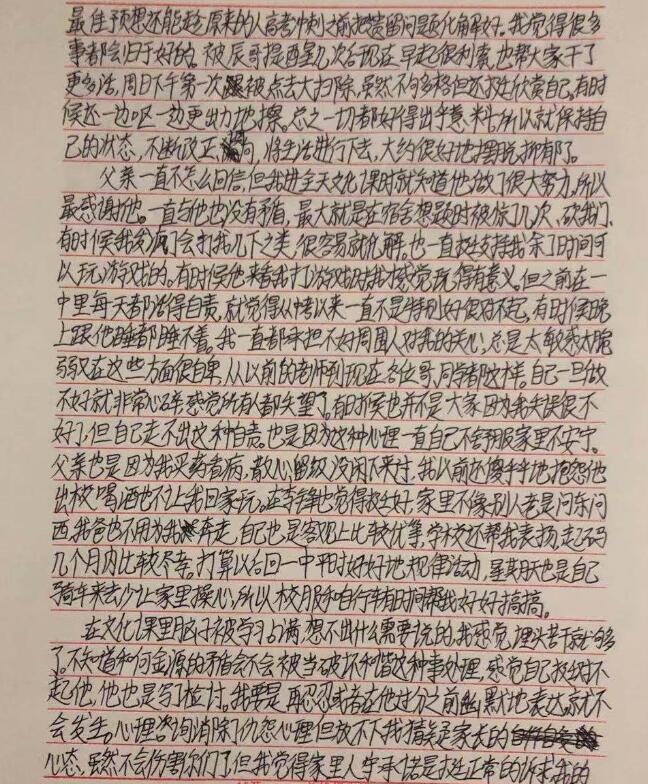 最佳预想还能趁原来的人高考冲刺之前把遗留问题化解好。我觉得很多
事都会归于好的。被辰哥提醒几次后现在早起很利索,也帮大家干了
更多活,周日下午第一次被点去大扫除,虽然不够多格但还挺欣赏自己。有时
候还一边呕一边更出力地擦。总之一切都好得出乎意料,所以就保持自
己的状态,不断改正,将生活进行下去,大约很好地摆脱抑郁了。
父亲一直不怎么回信,但我进全天文化课时就知道他做了很大努力,所以
最感谢他。一直与他也没有矛盾,最大就是在宿舍想题时被惊了几次、砍我们、
有时候我发疯了会打我几下之类,很容易就化解。也一直挺支持我余了时间可
以玩游戏的。有时候他来看我打游戏时我才感觉玩得有意义。但之前在一
中里每天都活得自责,就觉得从中考以来一直不是特别好很对不起,有时候晚
上跟他睡都睡不着。我一直都承担不好周围人对我的关心,总是太敏感太脆
弱又在这些方面很自卑,从以前的老师到现在各位哥、同学都这样。自己一旦做
不好就非常心碎,感觉所有人都失望了。有时候也并不是大家因为我失误很不
好了,但自己走不出这种自责。也是因为这种心理一直自己不舒服家里不安宁。
父亲也是因为我买药看病,散心留级没闲下来过,我以前还傻乎乎地抱怨他
出校喝酒也不让我回家玩。在李锋也觉得挺好,家里不像别人老是问东问
西,我爸也不用为我奔走,自己也是客观上比较优等,学校还帮我表扬,起码
几个月内比较尽孝。打算以后回一中平时好好地规律活动,星期天也是自己
骑车来去少让家里操心,所以校服和自行车有时间帮我好好搞搞。
在文化课里脑子被学习占满,想不出什么需要说的,我感觉,埋头苦干就够多
了。不知道和何金源的矛盾会不会被当破坏和谐这种事处理,感觉自己挺对不
起他,他也是写了检讨。我要是再忍忍或者在他过分之前幽默地表达,就不
会发生。心理咨询消除了仇怨心理但放不下我猜疑家长的
心态。虽然不会伤害你们了,但我觉得家里人宁手诺是挺正常的诉求,我的